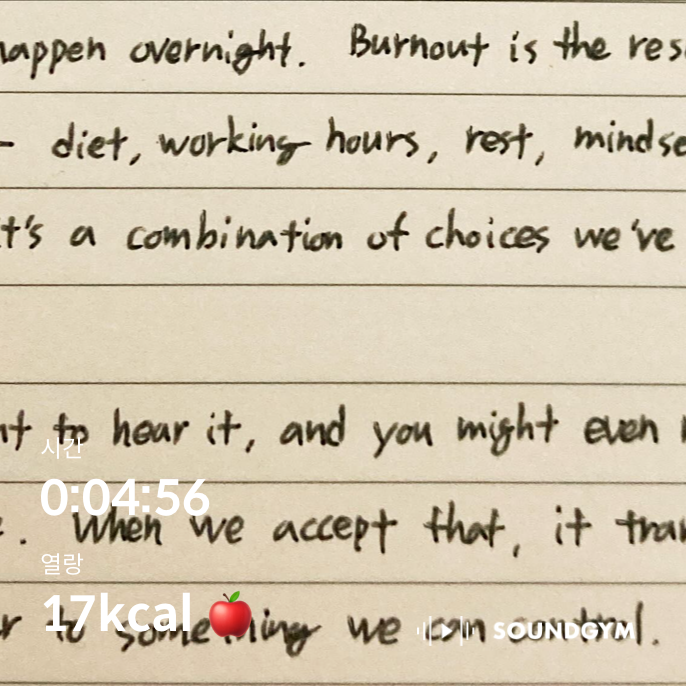 happen overnight. Burnout is the res
- diet, working hours, rest, mindse
t's a combination of choices we've
nt to hear it, and you might even
시간
0:04:56
. When we accept that, it tran
열량
17kcal
r to something we can control.
SOUNDGYM